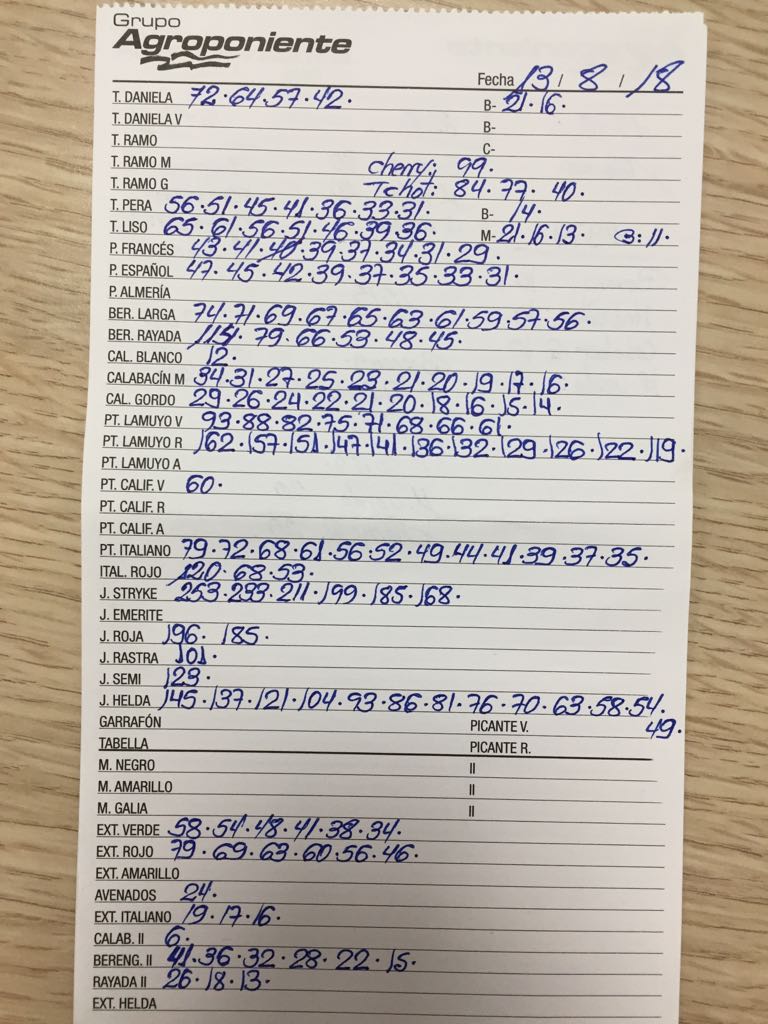 Grupo
Agroponiente
Fecha 13 / 8 / 18
T. DANELA 72·64·57·42· B- 21·16·
T. DANIELA V B-
T. RAMO C-
T. RAMO M cherry: 99·
T. RAMO G Tchot: 84·77·40·
T. PERA 56·51·45·41·36·33·31· B- 14·
T. LISO 65·61·56·51·46·39·36· M- 21·16·13· B: 11·
P. FRANCÉS 43·41·40·39·37·34·31·29·
P. ESPAÑOL 47·45·42·39·37·35·33·31·
P. ALMERÍA
BER. LARGA 74·71·69·67·65·63·61·59·57·56·
BER. RAYADA 114·79·66·53·48·45·
CAL. BLANCO 12·
CALABACÍN M 34·31·27·25·23·21·20·19·17·16·
CAL. GORDO 29·26·24·22·21·20·18·16·15·14·
PT. LAMUYO V 93·88·82·75·71·68·66·61·
PT. LAMUYO R 162·157·151·147·141·136·132·129·126·122·119·
PT. LAMUYO A
PT. CALIF. V 60·
PT. CALIF. R
PT. CALIF. A
PT. ITALIANO 79·72·68·61·56·52·49·44·41·39·37·35·
ITAL. ROJO 120·68·53·
J. STRYKE 253·233·211·199·185·168·
J. EMERITE
J. ROJA 196·185·
J. RASTRA 101·
J. SEMI 123·
J. HELDA 145·137·121·104·93·86·81·76·70·63·58·54·
GARRAFÓN PICANTE V. 49·
TABELLA PICANTE R.
M. NEGRO II
M. AMARILLO II
M. GALIA II
EXT. VERDE 58·54·48·41·38·34·
EXT. ROJO 79·69·63·60·56·46·
EXT. AMARILLO
AVENADOS 24·
EXT. ITALIANO 19·17·16·
CALAB. II 6·
BERENG. II 41·36·32·28·22·15·
RAYADA II 26·18·13·
EXT. HELDA